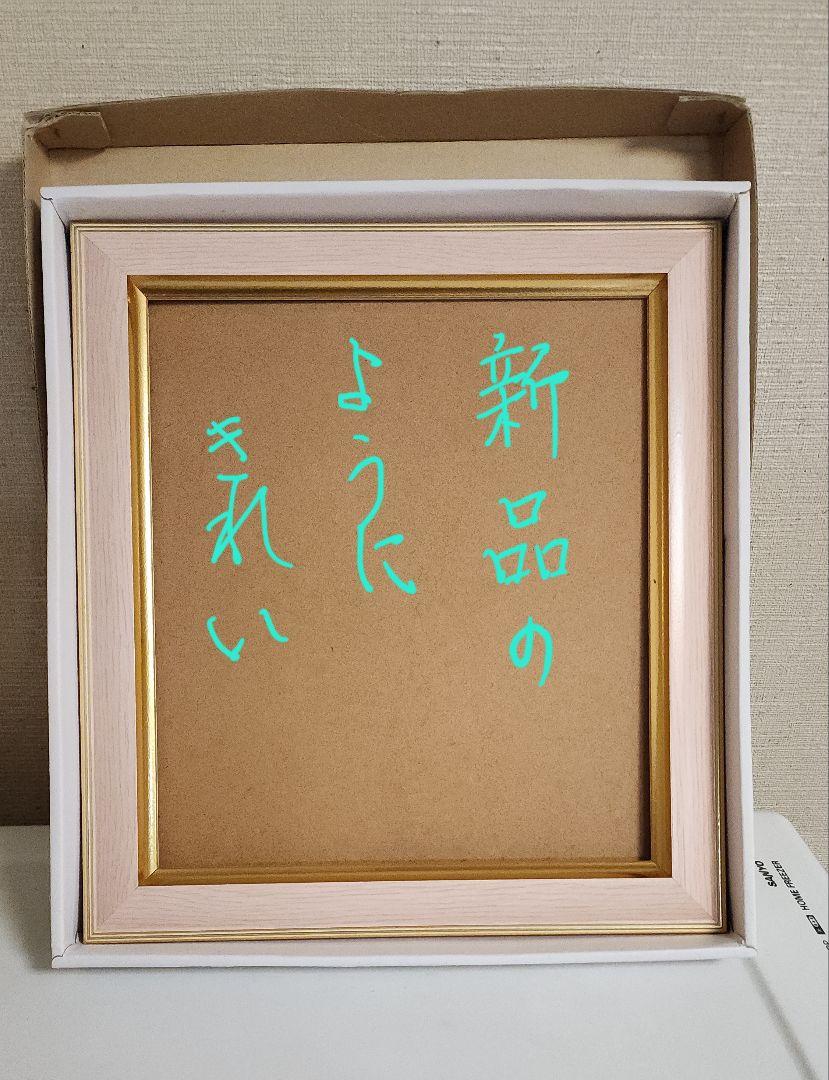 新品の
ように
きれい
SANYO
HOME FREEZER